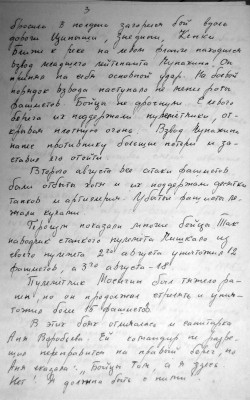 3
В полдень загорелся бой вдоль
дороги
Ближе к реке на левом фланге находился
взвод младшего лейтенанта Купажина. Он
принял на себя основной удар. На боевой
порядок взвода наступало не менее роты
фашистов. Бойцы не дрогнули. С левого
берега их поддержали пулеметчики, от-
крывая плотную огонь. Взвод Купажина
нанес противнику большие потери и за-
ставил его отойти.
Второго августа все атаки фашистов
были отбиты хотя и их поддержали десятки
танков и артиллерия. Убитые фашисты ле-
жали кучами.
Героизм показали многие бойцы. Так
наводчик станкового пулемета из
своего пулемета 2го августа уничтожил 12
фашистов, а 3го августа - 18.
Пулеметчик был тяжело ра-
нен, но он продолжал стрелять и унич-
тожил более 15 фашистов.
В этих боях отличилась и санитарка
Аня Воробьева. Ей командир не разре-
шил переправиться на правый берег, но
Аня сказала: „Бойцы там, а я здесь.
Нет! Я должна быть с ними